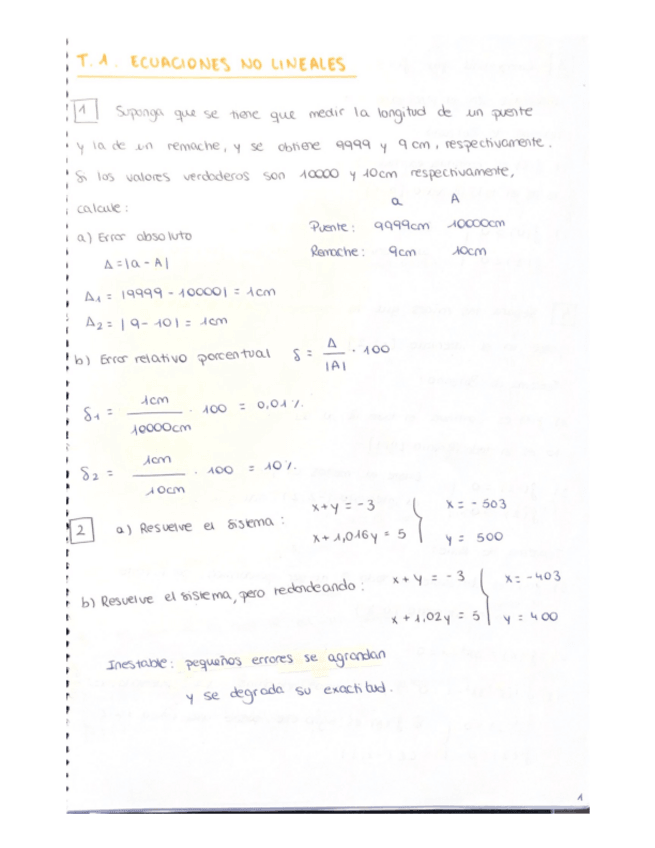 T.1. ECUACIONES NO LINEALES
1 Suponga que se tiene que medir la longitud de un puente
y la de un remache, y se obtiene 9999 y 9 cm, respectivamente.
Si los valores verdaderos son 10000 y 10cm respectivamente,
calcule:
a A
a) Error absoluto
Puente: 9999cm 10000cm
Remache: 9cm 10cm
Δ = |a - A|
Δ1 = |9999 - 10000| = 1cm
Δ2 = |9 - 10| = 1cm
b) Error relativo porcentual δ = Δ / |A| · 100
δ1 = 1cm / 10000cm · 100 = 0,01%
δ2 = 1cm / 10cm · 100 = 10%
2 a) Resuelve el sistema: x+y = -3 x = -503
x + 1,016y = 5 y = 500
b) Resuelve el sistema, pero redondeando: x + y = -3 x = -403
x + 1,02y = 5 y = 400
Inestable: pequeños errores se agrandan
y se degrada su exactitud.
1